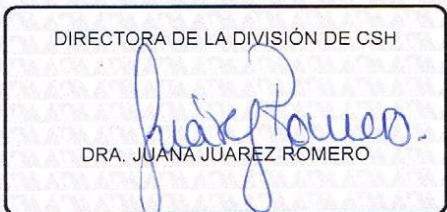 DIRECTORA DE LA DIVISIÓN DE CSH
Juárez Romero.
DRA. JUANA JUAREZ ROMERO